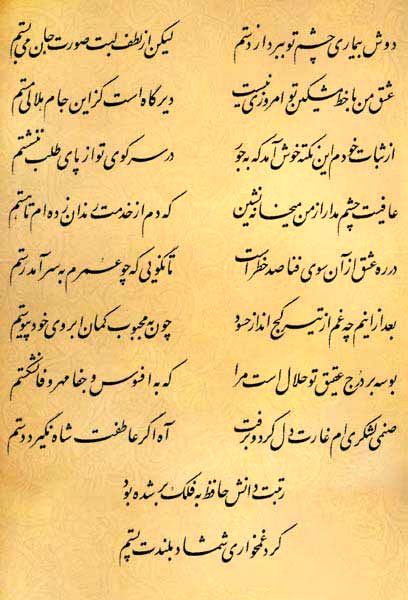 دوش بیماری چشم تو ببرد از دستم لیکن از لطف لبت صورت جان می بستم
عشق من با خط مشکین تو امروزی نیست دیرگاه است کز این جام هلالی مستم
از ثبات خودم این نکته خوش آمد که به جور در سر کوی تو از پای طلب ننشستم
عافیت چشم مدار از من میخانه نشین که دم از خدمت رندان زده ام تا هستم
در ره عشق از آن سوی فنا صد خطر است تا نگویی که چو عمرم به سر آمد رستم
بعد از اینم چه غم از تیر کج انداز حسود چون به محبوب کمان ابروی خود پیوستم
بوسه بر درج عقیق تو حلال است مرا که به افسوس و جفا مهر وفا نشکستم
صنمی لشکری ام غارت دل کرد و برفت آه اگر عاطفت شاه نگیرد دستم
رتبت دانش حافظ به فلک بر شده بود
کرد غمخواری شمشاد بلندت پستم